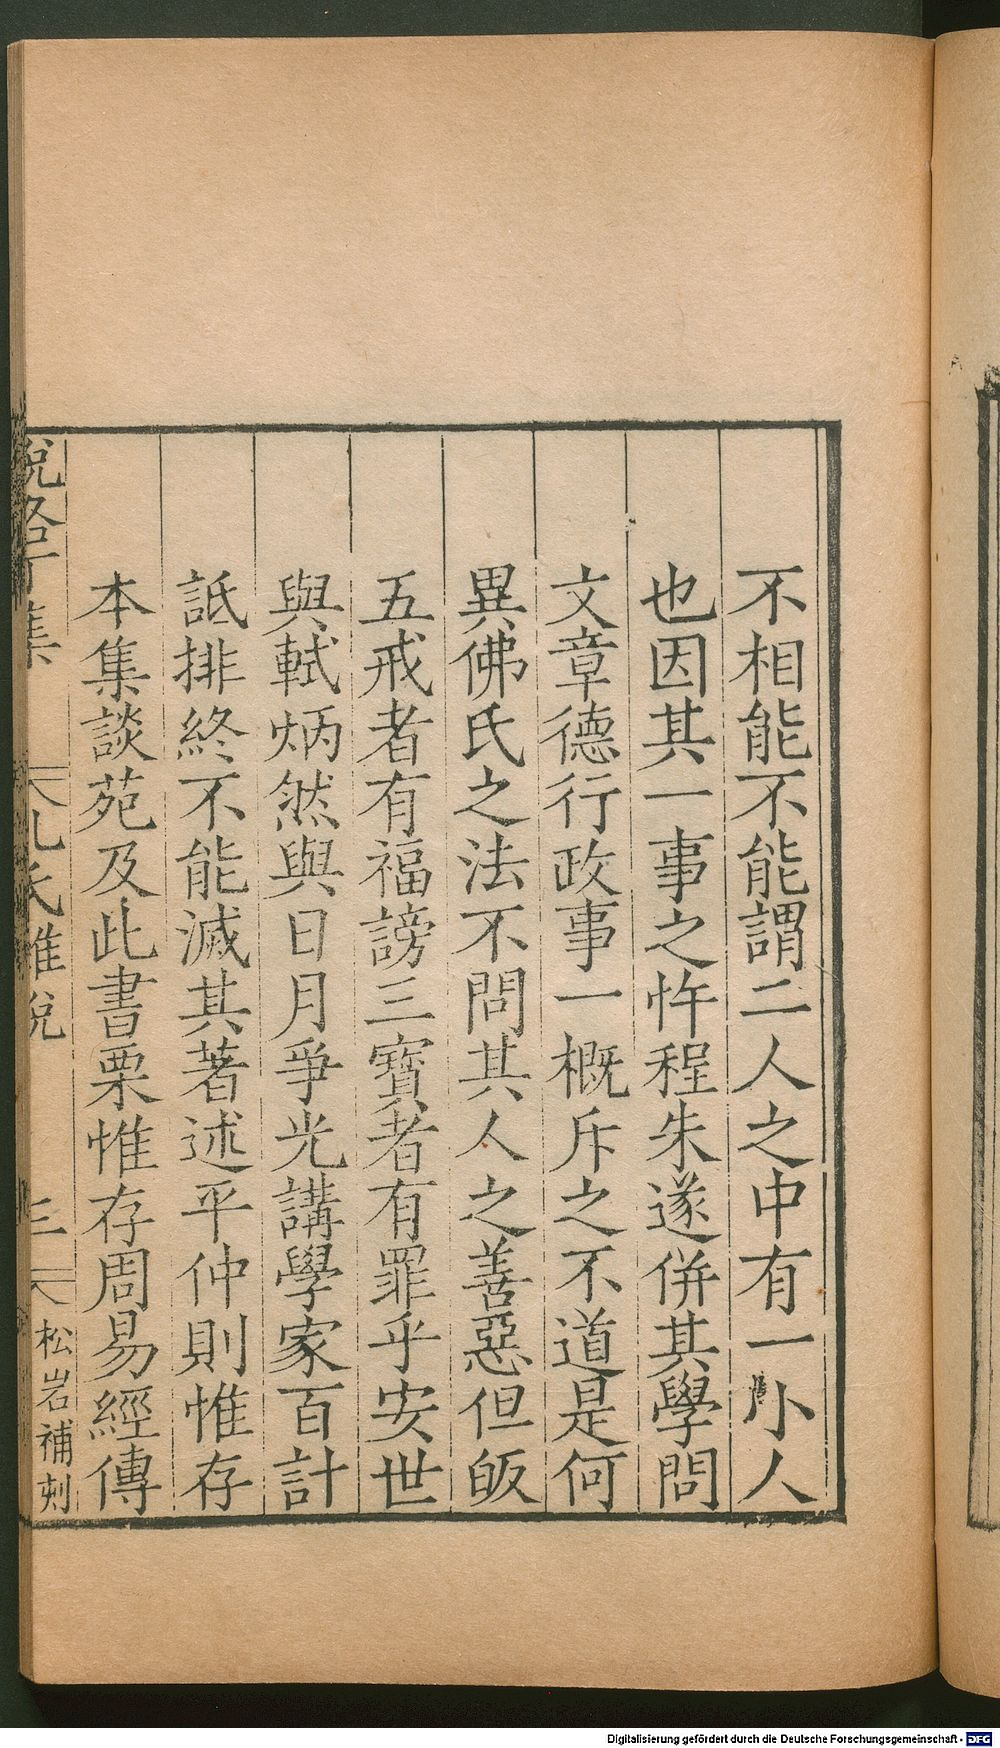 不相能不能謂二人之中有一小人
也因其一事之忤程朱遂併其學問
文章德行政事一概斥之不道是何
異佛氏之法不問其人之善惡但皈
五戒者有福謗三寶者有罪乎安世
與軾炳然與日月爭光講學家百計
詆排終不能滅其著述平仲則惟存
本集談苑及此書栗惟存周易經傳
說鈴 集 孔氏雜說 三 松岩補刻
Digitalisierung gefördert durch die Deutsche Forschungsgemeinschaft - DFG